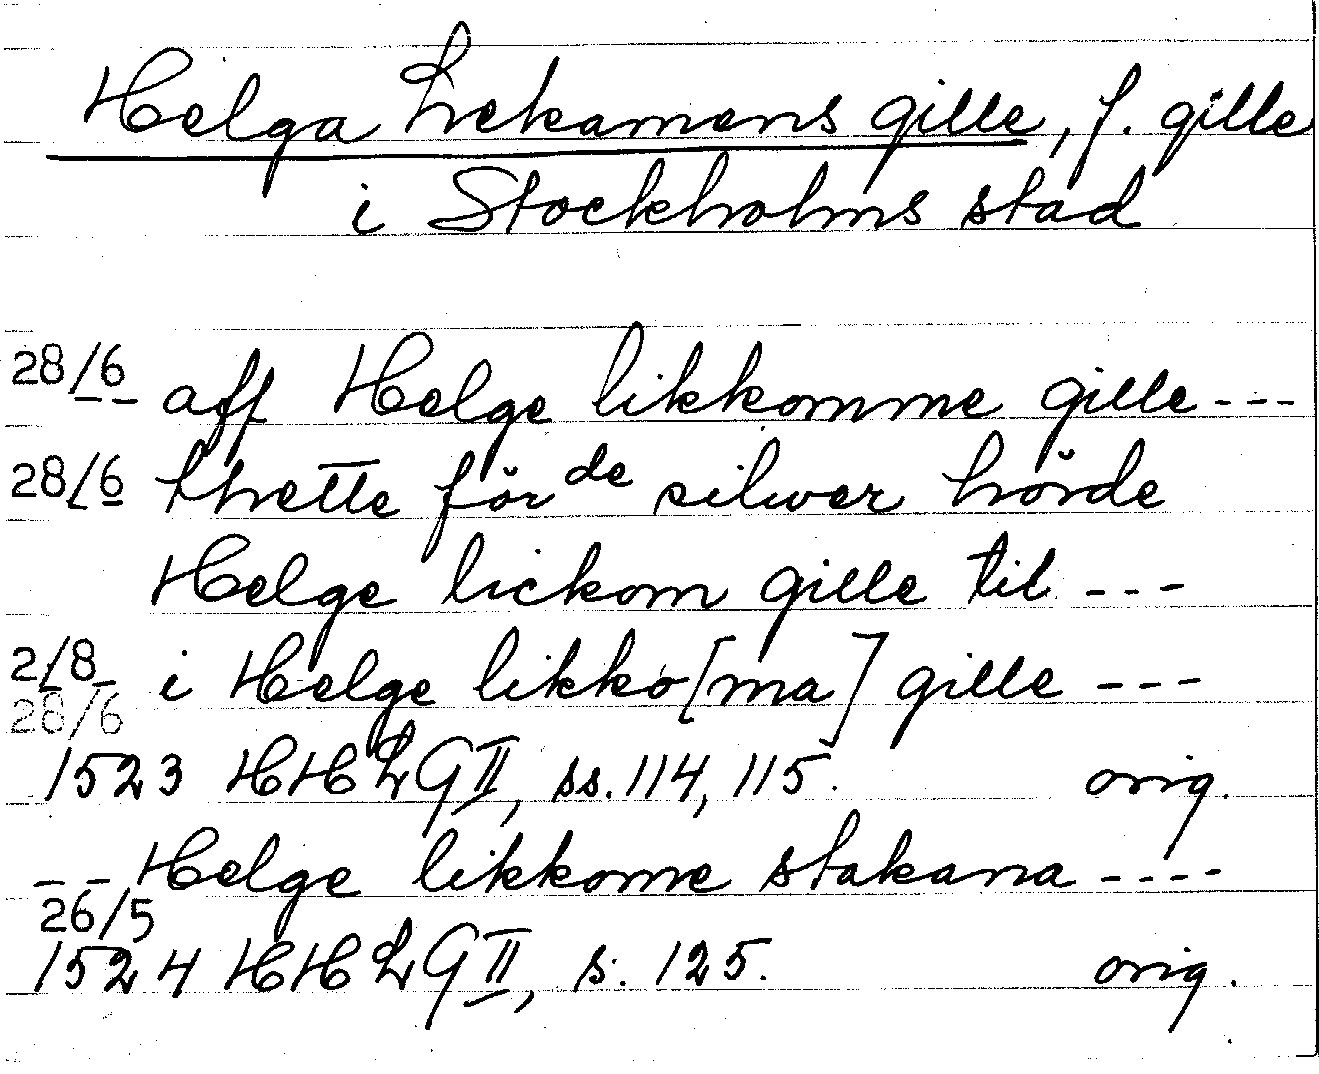 Helga Lekamens gille, f. gille
i Stockholms stad
28/6 aff Helge likkomme gille ---
28/6 thette för de silwer hörde
Helge lickom gille til ---
2/8 i Helge likko[ma] gille ---
28/6
1523 HHLGII, ss. 114, 115. orig.
-- Helge likkome stakana ----
26/5
1524 HHLGII, s. 125. orig.